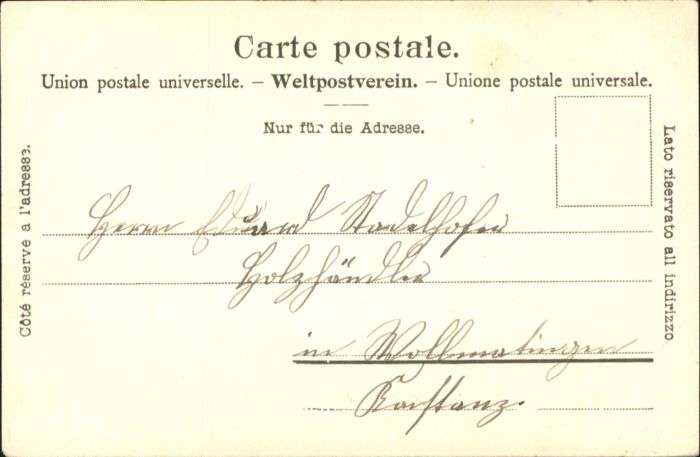 Carte postale.
Union postale universelle. – Weltpostverein. – Unione postale universale.
Nur für die Adresse.
Côté réservé a l'adresse.
Lato riservato all indirizzo
Herrn Eduard Stadelhofer
Holzhändler
in Wollmatingen
Konstanz.